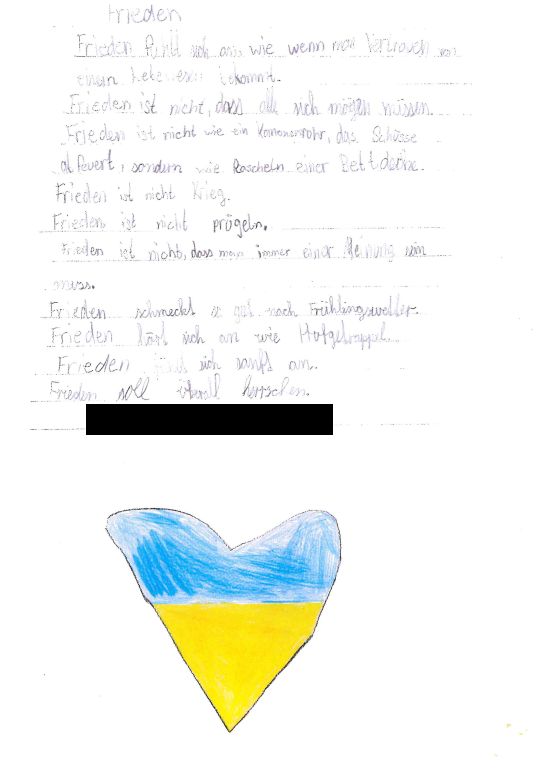 Frieden
Frieden fühlt sich an, wie wenn man Vertrauen von
einem Lebewesen bekommt.
Frieden ist nicht, dass alle sich mögen müssen.
Frieden ist nicht wie ein Kanonenrohr, das Schüsse
abfeuert, sondern wie Rascheln einer Bettdecke.
Frieden ist nicht Krieg.
Frieden ist nicht prügeln.
Frieden ist nicht, dass man immer einer Meinung sein
muss.
Frieden schmeckt so gut nach Frühlingswetter.
Frieden hört sich an wie Hufgetrappel.
Frieden fühlt sich sanft an.
Frieden soll überall herrschen.